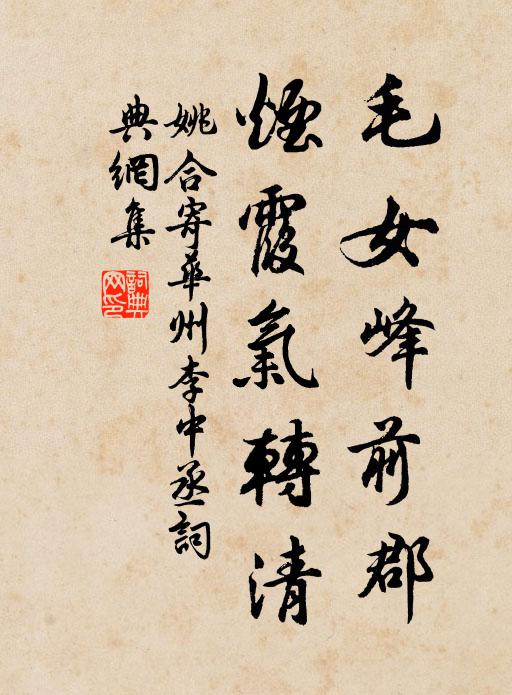 毛女峰前郡
煙霞氣轉清
姚合寄華州李中丞詞
典網集
詞典
网印